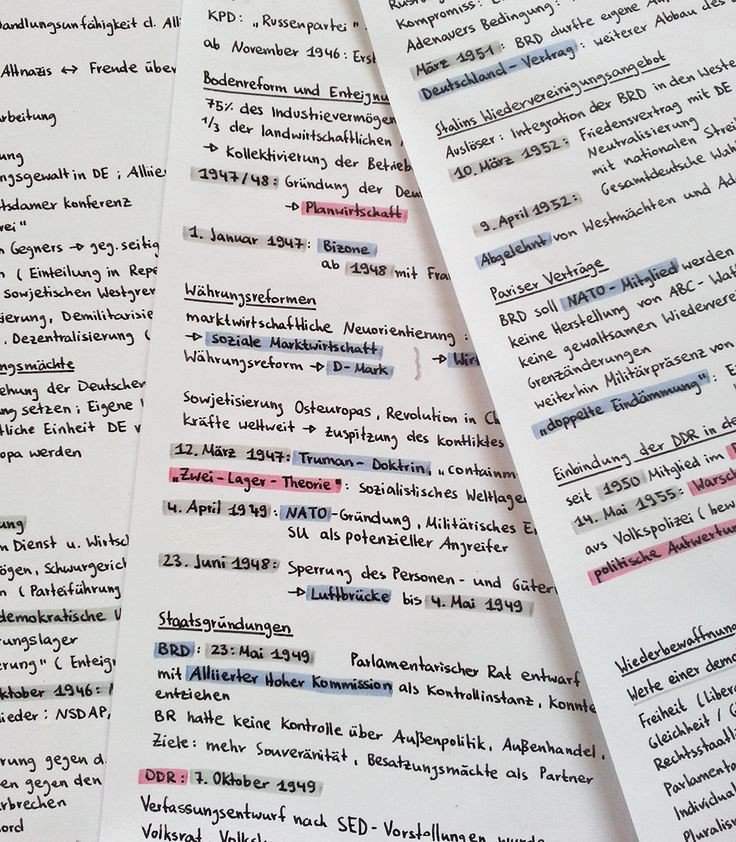 andlungsunfähigkeit d. Alli
Altnazis ↔ Freude über
rbeitung
ung
ngsgewalt in DE ; Alliie
tsdamer konferenz
rei"
n Gegners → geg. seitig
n ( Einteilung in Repe
sowjetischen Westgren
ierung, Demilitarisie
. Dezentralisierung (
ngsmächte
ehung der Deutschen
ng setzen ; Eigene
tliche Einheit DE v
opa werden
ung
m Dienst u. Wirtsc
ögen, Schwurgerich
n ( Parteiführung
demokratische V
rungslager
erung" ( Enteign
ktober 1946:
ieder : NSDAP,
rung gegen d.
en gegen den
rbrechen
ord
KPD : „Russenpartei"
ab November 1946 : Erst
Bodenreform und Enteignu
75% des Industrievermögen
1/3 der landwirtschaftlichen
→ Kollektivierung der Betrieb
1947/48 : Gründung der Deu
→ Planwirtschaft
1. Januar 1947 : Bizone
ab 1948 mit Fra
Währungsreformen
marktwirtschaftliche Neuorientierung :
→ soziale Marktwirtschaft
Währungsreform → D-Mark } → Wir
Sowjetisierung Osteuropas, Revolution in Ch
kräfte weltweit → zuspitzung des Konfliktes
12. März 1947 : Truman-Doktrin, „containm
„Zwei-Lager-Theorie" : sozialistisches Weltlage
4. April 1949 : NATO-Gründung, Militärisches
SU als potenzieller Angreifer
23. Juni 1948 : Sperrung des Personen- und Güter
→ Luftbrücke bis 4. Mai 1949
Staatsgründungen
BRD : 23. Mai 1949 Parlamentarischer Rat entwarf
mit Alliierter Hoher Kommission als Kontrollinstanz, konnte
entziehen
BR hatte keine Kontrolle über Außenpolitik, Außenhandel,
Ziele : mehr Souveränität, Besatzungsmächte als Partner
DDR : 7. Oktober 1949
Verfassungsentwurf nach SED-Vorstellungen wurde
Volksrat
Kompromiss :
Adenauers Bedingung :
März 1951 : BRD durfte eigene
Deutschland-Vertrag : weiterer Abbau des
Stalins Wiedervereinigungsangebot
Auslöser : Integration der BRD in den Weste
10. März 1952 : Friedensvertrag mit DE
Neutralisierung
mit nationalen Streit
Gesamtdeutsche Wahl
9. April 1952 :
Abgelehnt von Westmächten und Ad
Pariser Verträge
BRD soll NATO-Mitglied werden
keine Herstellung von ABC-Waf
keine gewaltsamen Wiederverei
Grenzänderungen
weiterhin Militärpräsenz von
„doppelte Eindämmung" :
Einbindung der DDR in de
seit 1950 Mitglied im
14. Mai 1955 : Warsch
aus Volkspolizei ( bew
politische Aufwertun
Wiederbewaffnun
Werte einer demo
Freiheit (Libera
Gleichheit / G
Rechtsstaatli
Parlamenta
Individual
Pluralism